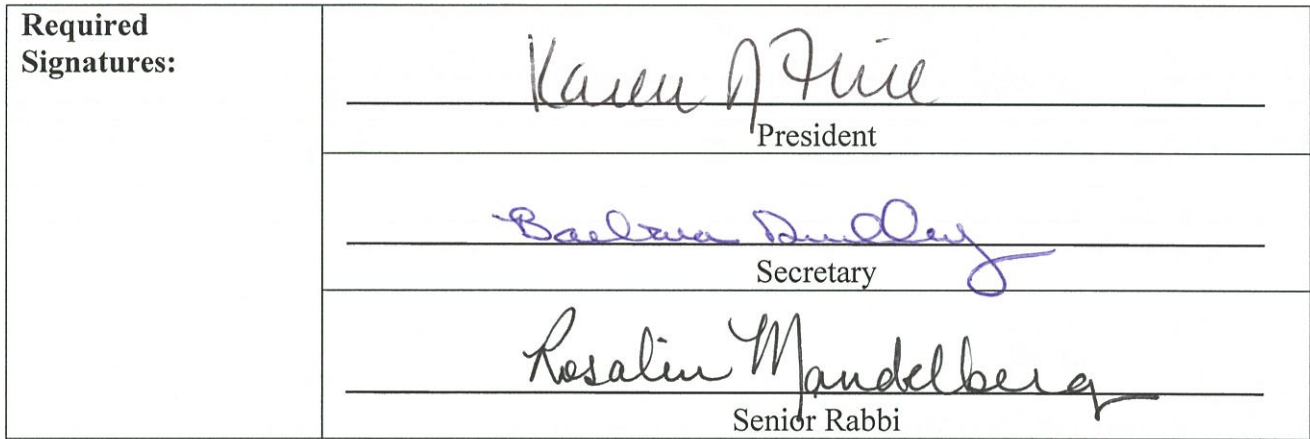 Required
Signatures:
Karen J Fine
President
Barbara Dudley
Secretary
Rosalin Mandelberg
Senior Rabbi